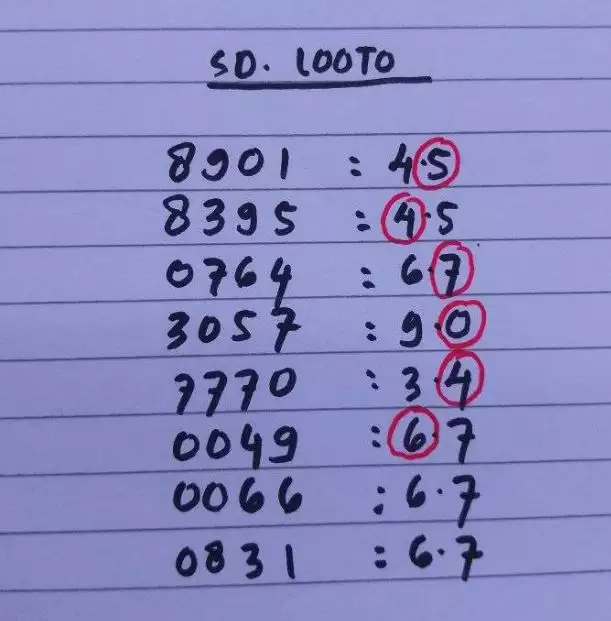 SD. LOOTO
8901 : 4.5
8395 : 4.5
0764 : 6.7
3057 : 9.0
7770 : 3.4
0049 : 6.7
0066 : 6.7
0831 : 6.7